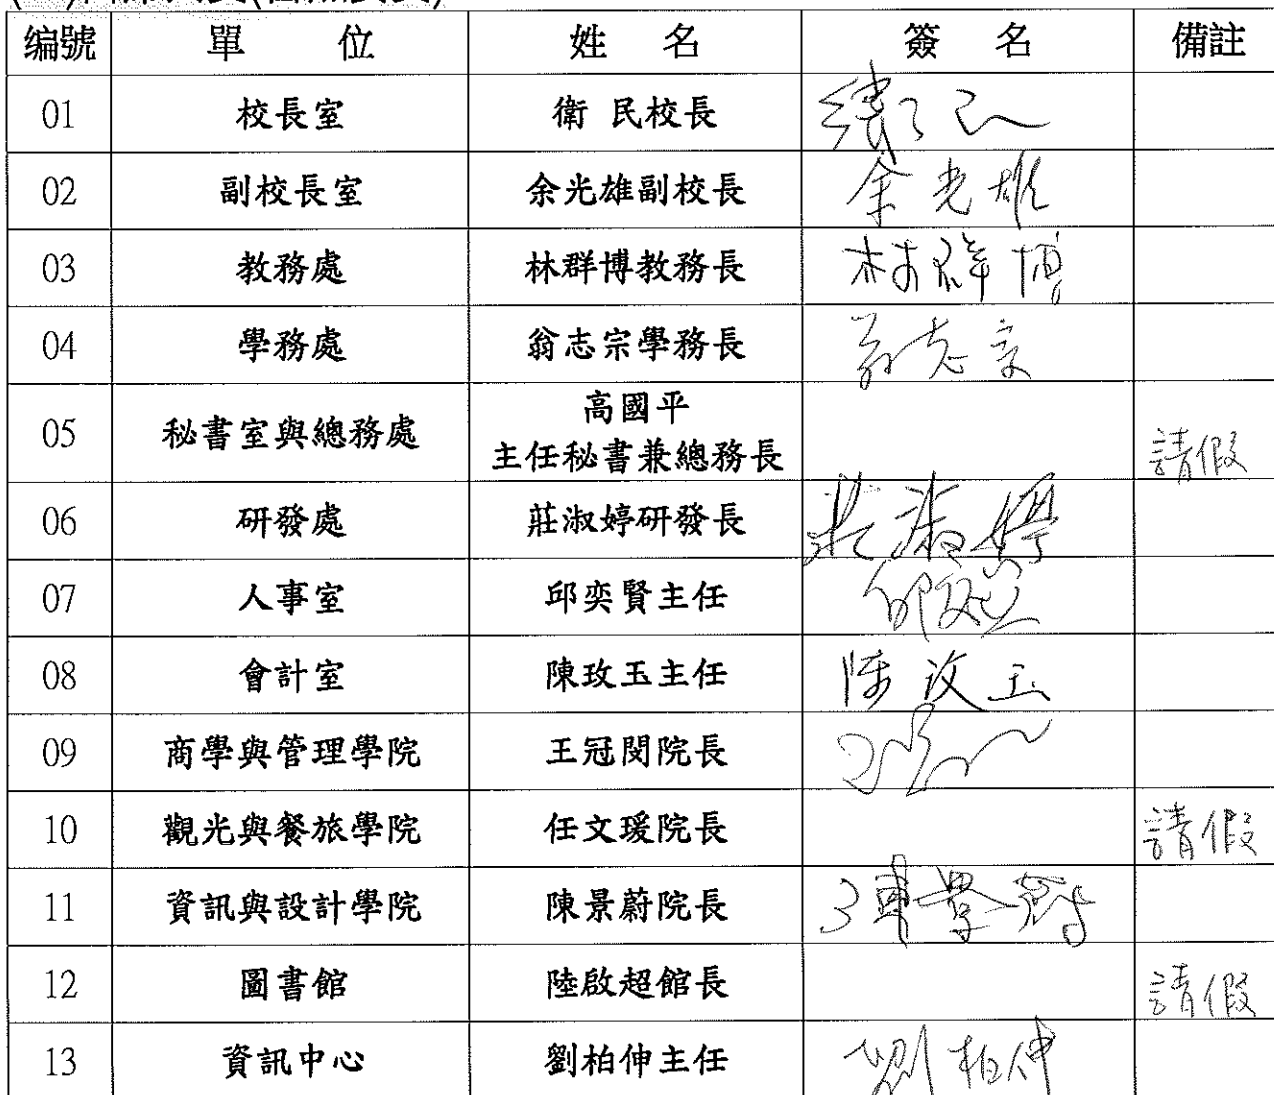 编號 單 位 姓 名 簽 名 備註
01 校長室 衛 民校長 衛民
02 副校長室 余光雄副校長 余光雄
03 教務處 林群博教務長 林群博
04 學務處 翁志宗學務長 翁志宗
05 秘書室與總務處 高國平
主任秘書兼總務長 請假
06 研發處 莊淑婷研發長 莊淑婷
07 人事室 邱奕賢主任
08 會計室 陳玫玉主任 陳玫玉
09 商學與管理學院 王冠閔院長
10 觀光與餐旅學院 任文瑗院長 請假
11 資訊與設計學院 陳景蔚院長 陳景蔚
12 圖書館 陸啟超館長 請假
13 資訊中心 劉柏伸主任 劉柏伸